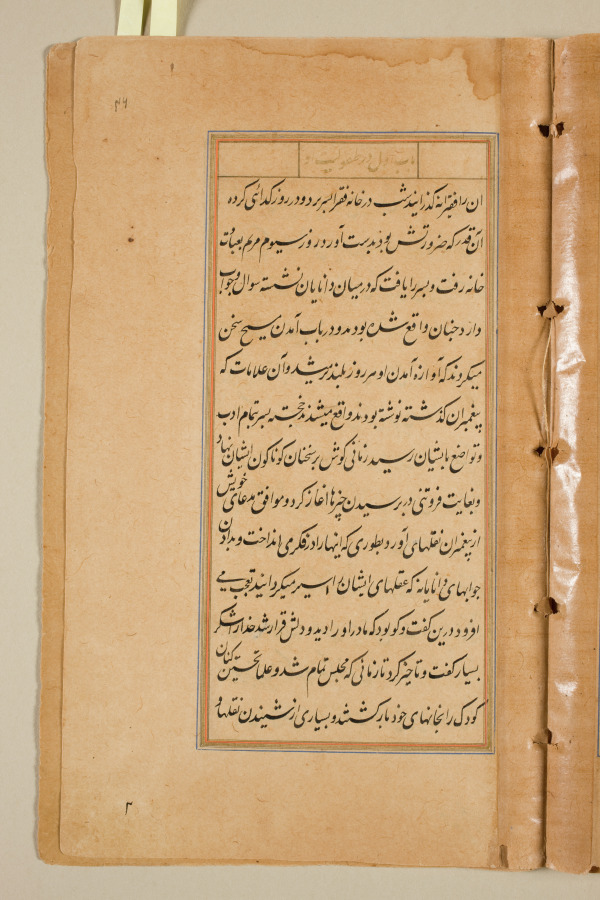 ۴۶
باب اول در طفولیت و
ان را فقیرانه گذرانید شب در خانه فقرا بسر برد و در روز گدائی کرده
آن قدر که ضرورتش بود بدست آورد روز سیوم مریم بعبادت
خانه رفت و پسر را یافت که در میان دانایان نشسته سوال و جواب
دارد چنان واقع شده بود و در باب آمدن مسیح سخن
میکردند که آوازه آمدن او هر روز بلندتر میشد و آن علامات که
پیغمبران گذشته نوشته بودند واقع میشدند خجسته پسر بتمام ادب
و تواضع بایشان رسید زمانی گوش بر سخنان گوناگون ایشان نهاد
و بغایت فروتنی در پرسیدن چیزها اغاز کرد و موافق مدعای خویش
از پیغمبران نقلهای آورد بطوری که اینها را در فکر می انداخت و بدادن
جوابهای دانایانه که عقلهای ایشان را اسیر میگردانید تعجب می
افزود درین گفت و گو بود که مادر او را دید و دلش قرار شد خدا را شکر
بسیار گفت و تاخیر کرد تا زمانی که مجلس تمام شد و علما تحسین کنان
کودک را بخانهای خود باز گشتند و بسیاری از شنیدن نقلها و
۳